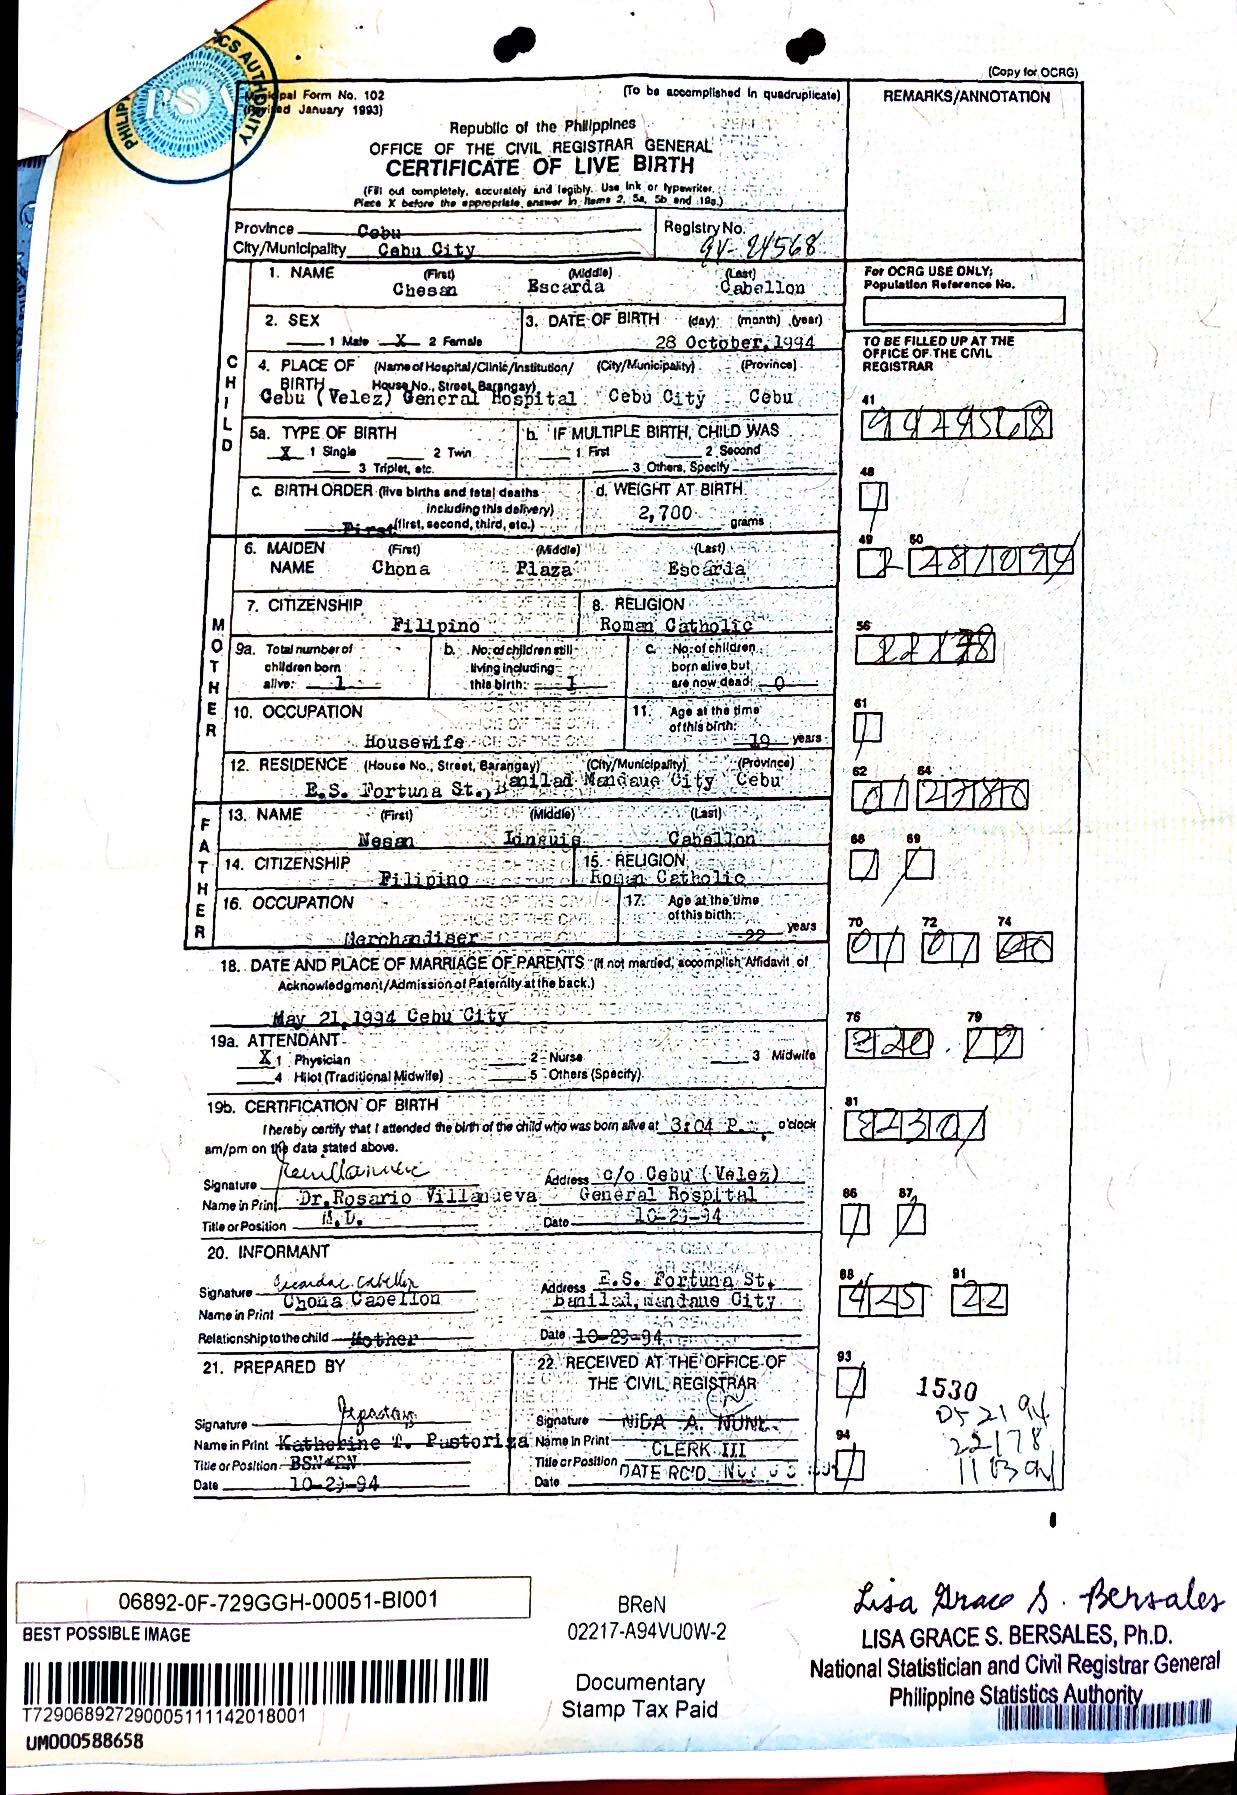 (Copy for OCRG)
Municipal Form No. 102
(Revised January 1993)
(To be accomplished in quadruplicate)
REMARKS/ANNOTATION
Republic of the Philippines
OFFICE OF THE CIVIL REGISTRAR GENERAL
CERTIFICATE OF LIVE BIRTH
(Fill out completely, accurately and legibly. Use ink or typewriter.
Place X before the appropriate answer in Items 2, 5a, 5b and 19a.)
Province Cebu
City/Municipality Cebu City
Registry No. 94-24568
CHILD
1. NAME (First) (Middle) (Last)
Chesan Escarda Cabellon
For OCRG USE ONLY:
Population Reference No.
2. SEX
1 Male X 2 Female
3. DATE OF BIRTH (day) (month) (year)
28 October, 1994
TO BE FILLED UP AT THE
OFFICE OF THE CIVIL
REGISTRAR
4. PLACE OF BIRTH (Name of Hospital/Clinic/Institution/ House No., Street, Barangay) (City/Municipality) (Province)
Cebu (Velez) General Hospital Cebu City Cebu
41
9424568
5a. TYPE OF BIRTH
X 1 Single 2 Twin
3 Triplet, etc.
b. IF MULTIPLE BIRTH, CHILD WAS
1 First 2 Second
3 Others, Specify
48
c. BIRTH ORDER (live births and fetal deaths
including this delivery)
First (first, second, third, etc.)
d. WEIGHT AT BIRTH
2,700 grams
49 50
2 281094
MOTHER
6. MAIDEN NAME (First) (Middle) (Last)
Chona Plaza Escarda
7. CITIZENSHIP
Filipino
8. RELIGION
Roman Catholic
56
9a. Total number of
children born
alive: 1
b. No. of children still
living including
this birth: 1
c. No. of children
born alive but
are now dead: 0
10. OCCUPATION
Housewife
11. Age at the time
of this birth:
19 years
61
12. RESIDENCE (House No., Street, Barangay) (City/Municipality) (Province)
E.S. Fortuna St., Banilad Mandaue City Cebu
62 64
FATHER
13. NAME (First) (Middle) (Last)
Nesan Cabellon
14. CITIZENSHIP
Filipino
15. RELIGION
Roman Catholic
68 69
16. OCCUPATION
Merchandiser
17. Age at the time
of this birth:
22 years
70 72 74
01 01 00
18. DATE AND PLACE OF MARRIAGE OF PARENTS (If not married, accomplish Affidavit of
Acknowledgment/Admission of Paternity at the back.)
May 21, 1994 Cebu City
19a. ATTENDANT
X 1 Physician 2 Nurse 3 Midwife
4 Hilot (Traditional Midwife) 5 Others (Specify)
76 79
19b. CERTIFICATION OF BIRTH
I hereby certify that I attended the birth of the child who was born alive at 3:04 P. o'clock
am/pm on the data stated above.
81
Signature
Name in Print Dr. Rosario Villanueva
Title or Position M.D.
Address c/o Cebu (Velez)
General Hospital
Date 10-29-94
86 87
20. INFORMANT
Signature
Name in Print Chona Cabellon
Relationship to the child Mother
Address E.S. Fortuna St.
Banilad, Mandaue City
Date 10-29-94
88 91
425 22
21. PREPARED BY
Signature
Name in Print Katherine T. Pastoriza
Title or Position BSN-RN
Date 10-29-94
22. RECEIVED AT THE OFFICE OF
THE CIVIL REGISTRAR
Signature
Name in Print
Title or Position CLERK III
Date DATE RC'D.
93
1530
052194
22178
94
06892-0F-729GGH-00051-BI001
BEST POSSIBLE IMAGE
T729068927290005111142018001
UM000588658
BReN
02217-A94VU0W-2
Documentary
Stamp Tax Paid
Lisa Grace S. Bersales
LISA GRACE S. BERSALES, Ph.D.
National Statistician and Civil Registrar General
Philippine Statistics Authority